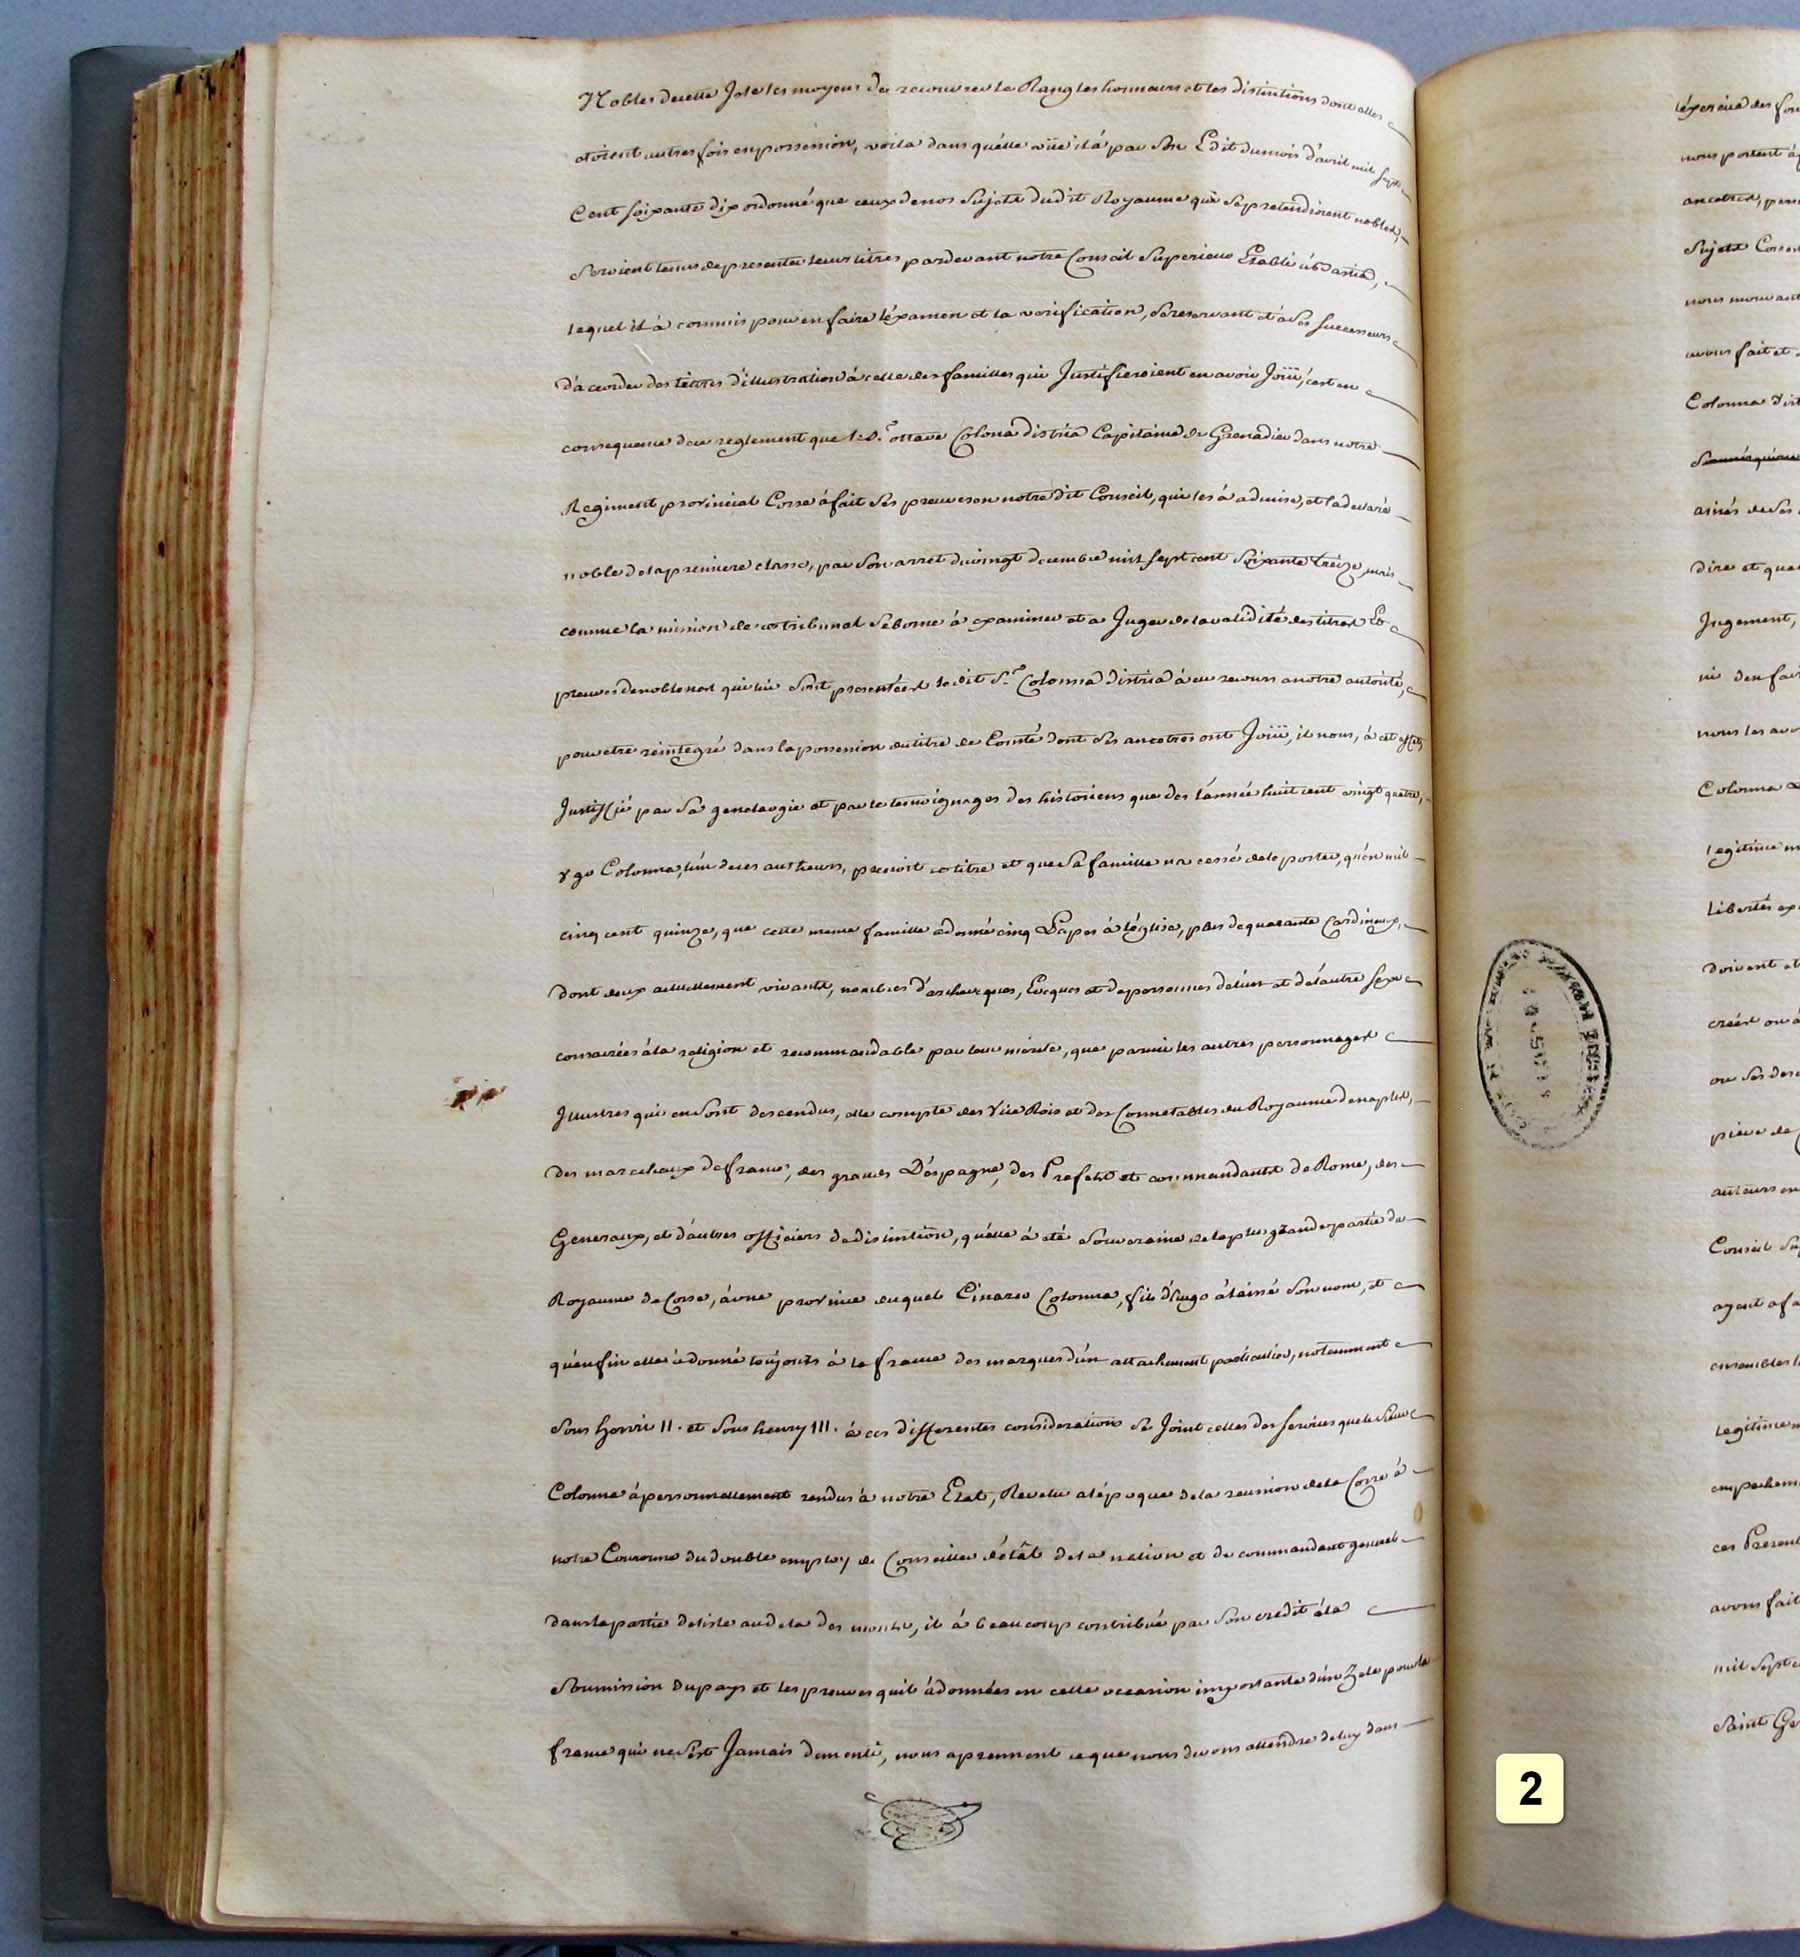 Nobles de cette Isle les moyens de recouvrer le Rang les honneurs et les distinctions dont elles
etoient autres fois en possession, voila dans quélle vüe il á par son Edit du mois d'avril mil sept
Cent soixante dix ordonné que ceux de nos Sujets dudit Royaume qui se pretendroient nobles,
Seroient tenus de presenter leurs titres pardevant notre Conseil Superieur Etabli á Bastia,
lequel il á commis pour en faire l'éxamen et la verification, se reservant et á ses successeurs
d'accorder des lettres d'illustration á celle des familles qui Justifieroient en avoir Joüi, c'est en
consequence de ce reglement que le S.r ottave Colona d'istria Capitaine de Grenadier dans notre
Regiment provincial Corse á fait ses preuves en notre dit Conseil, qui les á admise, et l'a declaré
noble de la premiere classe, par son arret du vingt decembre mil sept cent soixante treize, mais
comme la mission de ce tribunal se borne á examiner et a Juger de la validité des titres Et
preuves de noblesse qui lui sont presentées le dit S.r Colonna d'istria á eu recours a notre autorité,
pour etre reintegré dans la possession du titre de Comte dont ses ancetres ont Joüi, il nous, á cet effet,
Justiffié par sa genealogie et par le temoignages des historiens que des l'année huit cent vingt quatre,
Ugo Colonna, l'un de ces autheurs, prenoit ce titre et que sa famille n'a cessé de le porter, qu'en mil
cinq cent quinze, que cette meme famille a donné cinq Papes á l'église, plus de quarante Cardineaux,
dont deux actuellement vivants, nombres d'archeveques, Eveques et de personnes de l'un et de l'autre sexe
consacrées á la religion et recommandable par leur merite, que parmi les autres personnages
Illustres qui en sont descendus, elle compte des Vice Rois et des Connetables du Royaume de naples,
des marechaux de france, des grands D'éspagne, des Prefets et commandants de Rome, des
Generaux, et d'autres officiers de distinction, quélle á eté souveraine de la plus grande partie du
Royaume de Corse, á une province duquel Cinarco Colonna, fils d'hugo á laissé son nom, et
qu'enfin elle á donné toujours á la france des marques d'un attachement particulier, notamment
sous henri II. et sous henry III. á ces differentes considerations se Joint celles des services que le Sieur
Colonna á personnellement rendus á notre Etat, Revetu a l'époque de la reunion de la Corse á
notre Couronne du double employ de Conseiller d'état de la nation et de commandant general
dans la partie de l'isle au dela des monts, il á beaucoup contribué par son credit á la
Soumission du pays et les preuves qu'il á données en cette occasion importante d'un Zele pour la
france qui ne s'est Jamais dementi, nous aprennent ce que nous devons attendre de luy dans
léxercice des
nous portent
ancetres,
Sujets
avons fait et
Colonna
ainés de ses
dire et que
Jugement,
ni d'en
nous les
Colonna
legitime
doivent et
ou ses
pieve de
auteurs
Conseil
ayent
Legitime
avons fait
mil sept
Saint
2